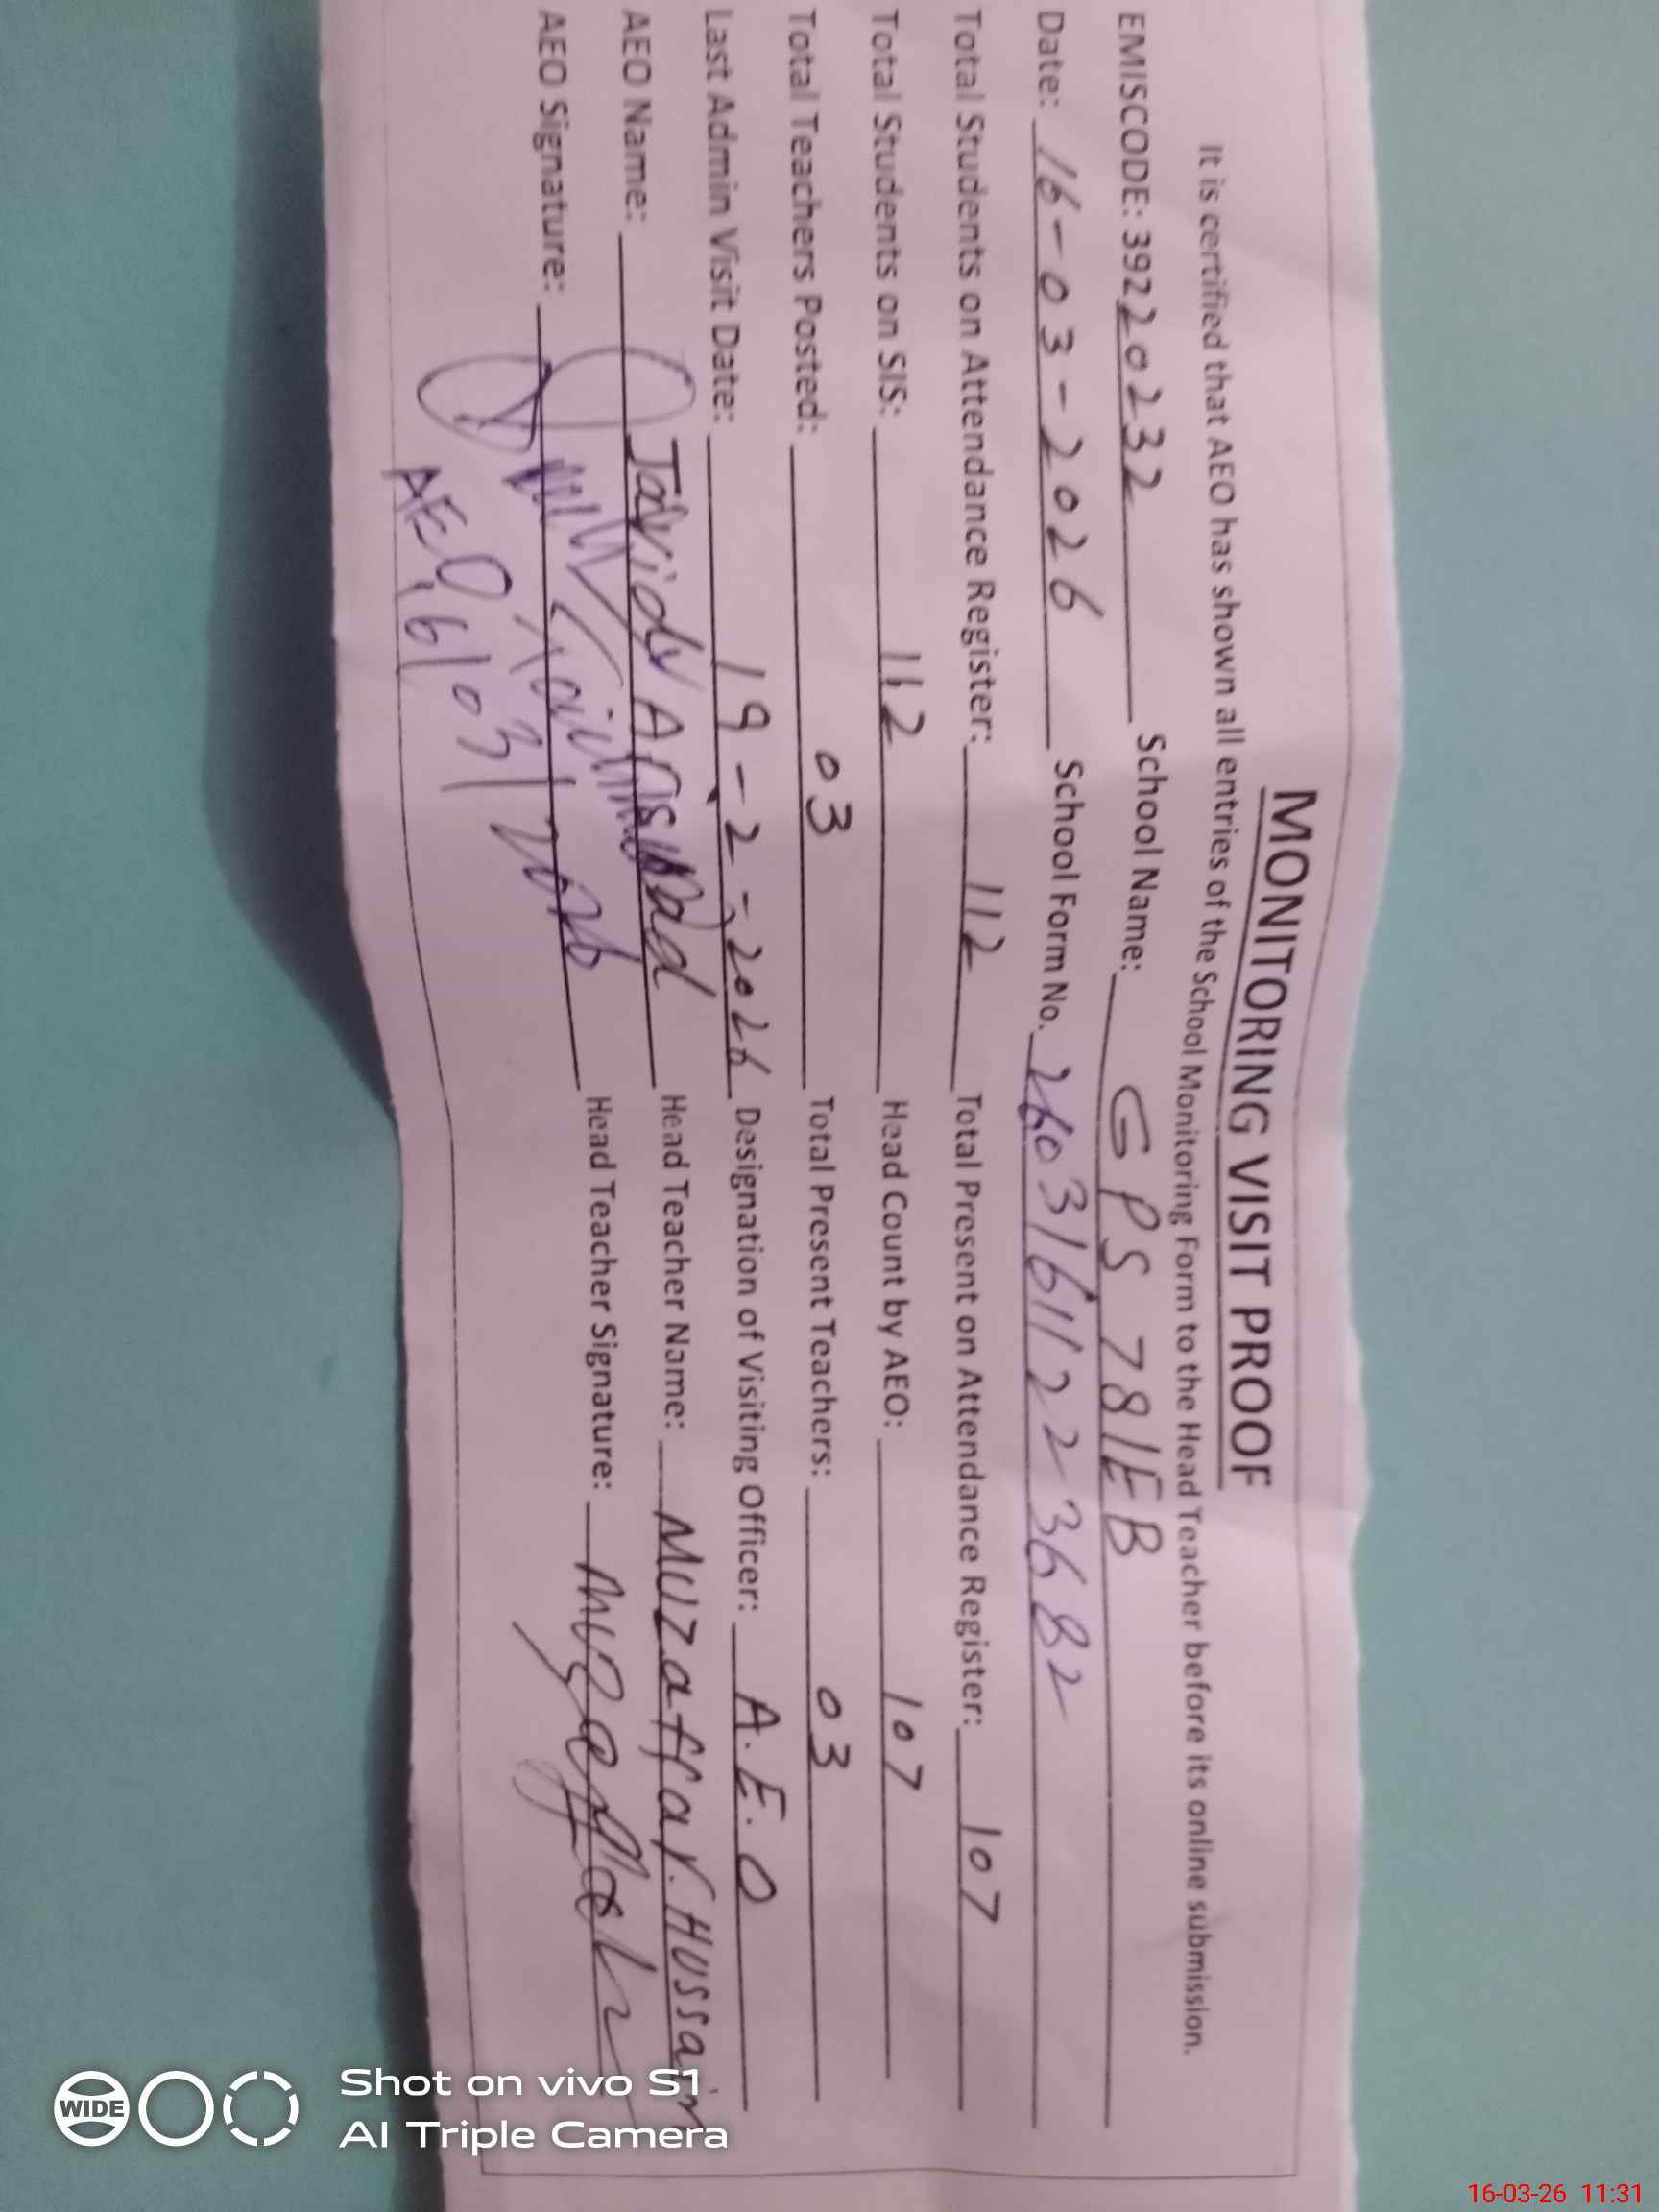 MONITORING VISIT PROOF
It is certified that AEO has shown all entries of the School Monitoring Form to the Head Teacher before its online submission.
EMISCODE: 39220232 School Name: GPS 781EB
Date: 16-03-2026 School Form No. 26031611223682
Total Students on Attendance Register: 112 Total Present on Attendance Register: 107
Total Students on SIS: 112 Head Count by AEO: 107
Total Teachers Posted: 03 Total Present Teachers: 03
Last Admin Visit Date: 19-2-2026 Designation of Visiting Officer: A.E.O
AEO Name: Javid Head Teacher Name: Muzaffar Hussain
AEO Signature: Head Teacher Signature:
AEO
16/03/2026
WIDE
Shot on vivo S1
AI Triple Camera
16-03-26 11:31